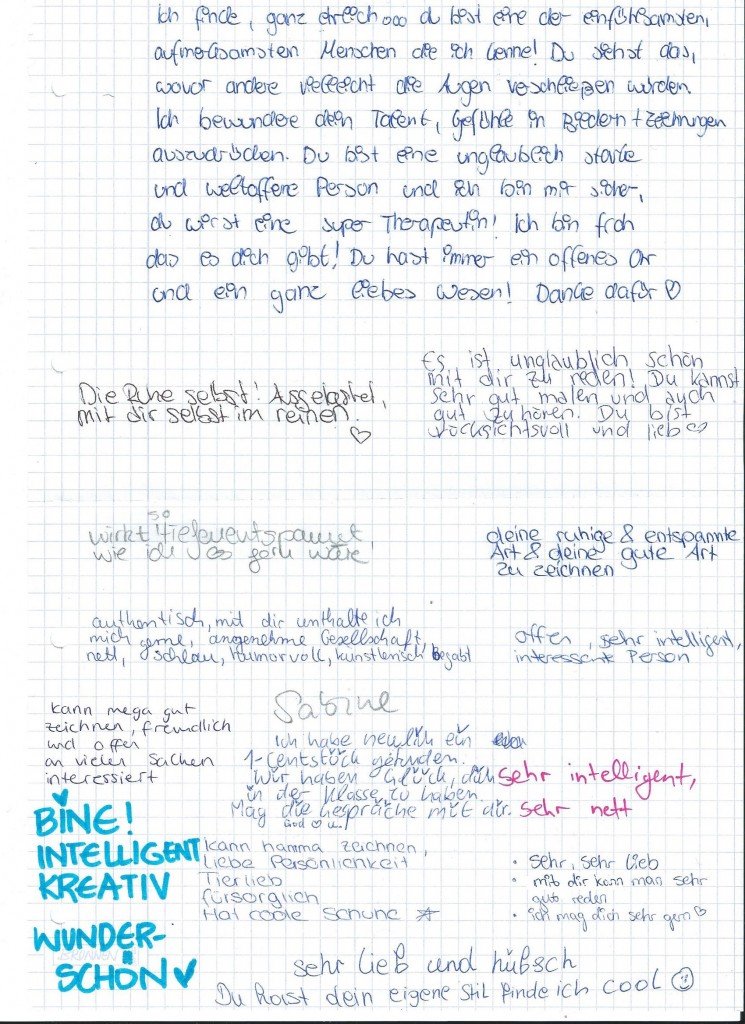 Ich finde, ganz ehrlich, du bist eine der einfühlsamsten,
aufmerksamsten Menschen die ich kenne! Du siehst das,
wovor andere vielleicht die Augen verschließen würden.
Ich bewundere dein Talent, Gefühle in Bildern + Zeichnungen
auszudrücken. Du bist eine unglaublich starke
und weltoffene Person und ich bin mir sicher,
du wirst eine super Therapeutin! Ich bin froh
das es dich gibt! Du hast immer ein offenes Ohr
und ein ganz liebes Wesen! Danke dafür ♡
Die Ruhe selbst! Ausgelastet,
mit dir selbst im reinen.
♡
Es ist unglaublich schön
mit dir zu reden! Du kannst
sehr gut malen und auch
gut zuhören. Du bist
rücksichtsvoll und lieb ♡
so
wirkt tiefenentspannt,
wie ich gern wäre!
deine ruhige & entspannte
Art & deine gute Art
zu zeichnen
authentisch, mit dir unthalte ich
mich gerne, angenehme Gesellschaft,
nett, schlau, humorvoll, künstlerisch begabt
offen, sehr intelligent,
interessante Person
kann mega gut
zeichnen, freundlich
und offen
an vielen Sachen
interessiert
Sabine
Ich habe neulich ein
1-Centstück gefunden.
Wir haben Glück, dich
in der Klasse zu haben.
Mag die Gespräche mit dir.
sehr intelligent,
sehr nett
BINE!
INTELLIGENT
KREATIV
WUNDER-
SCHÖN ♥
kann hamma zeichnen,
Liebe Persönlichkeit
Tierlieb
fürsorglich
Hat coole Schuhe ☆
• sehr, sehr lieb
• mit dir kann man sehr
gut reden
• ich mag dich sehr gern ♡
sehr lieb und hübsch
Du hast dein eigene Stil finde ich cool ☺